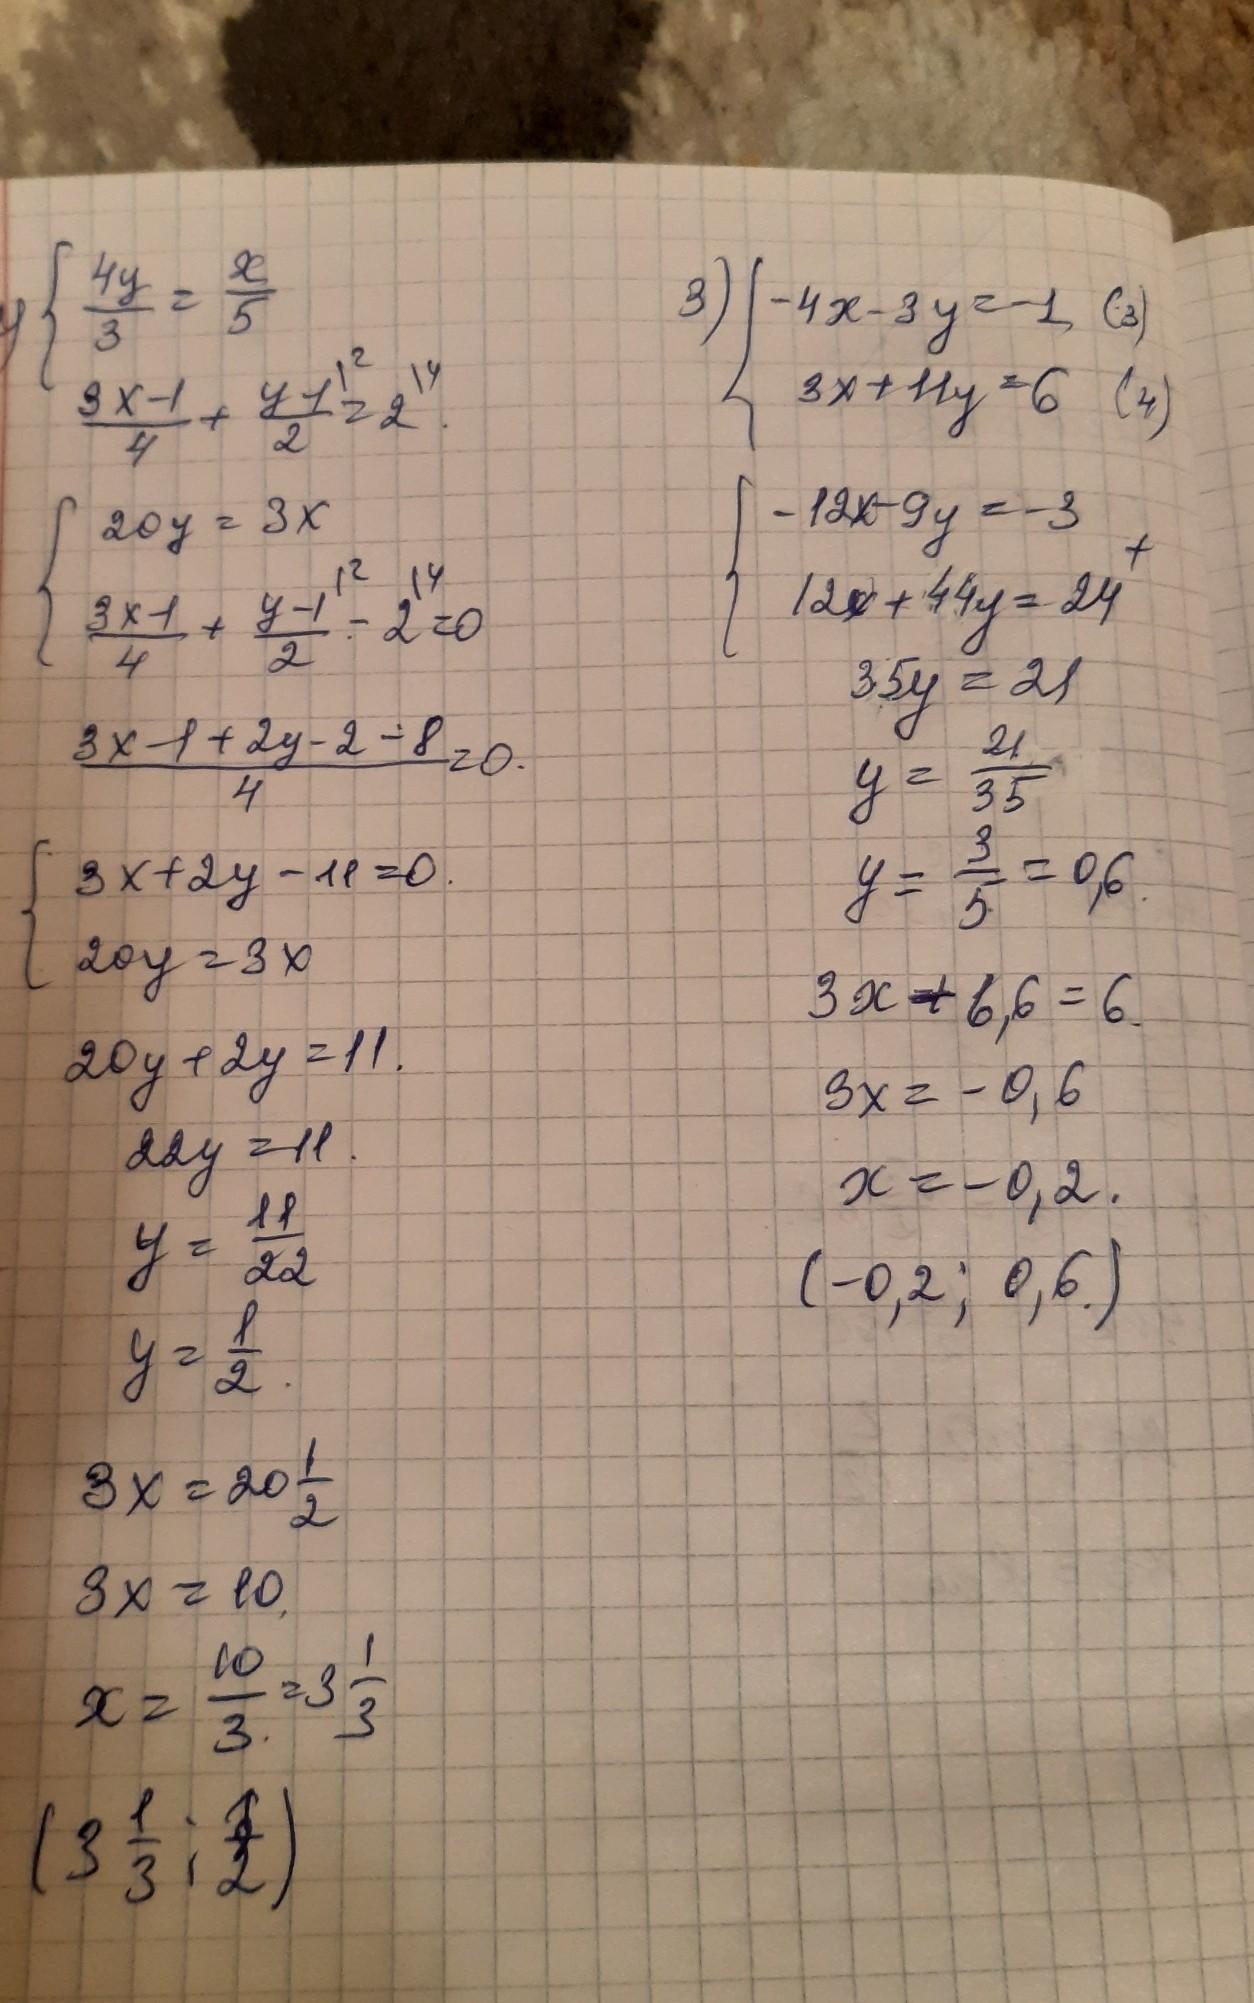 4y/3 = x/5
(3x-1)/4 + (y-1)/2 |2 = 2 |4.
20y = 3x
(3x-1)/4 + (y-1)/2 |2 - 2 |4 = 0
(3x-1+2y-2-8)/4 = 0.
3x+2y-11=0.
20y=3x
20y+2y=11.
22y=11.
y = 11/22
y = 1/2.
3x = 20 1/2
3x = 10,
x = 10/3. = 3 1/3
(3 1/3; 1/2)
3) { -4x-3y=-1, (3)
3x+11y=6 (4)
{ -12x-9y=-3
+
12x+44y=24
35y=21
y = 21/35
y = 3/5 = 0,6.
3x+6,6=6.
3x=-0,6
x=-0,2.
(-0,2; 0,6.)